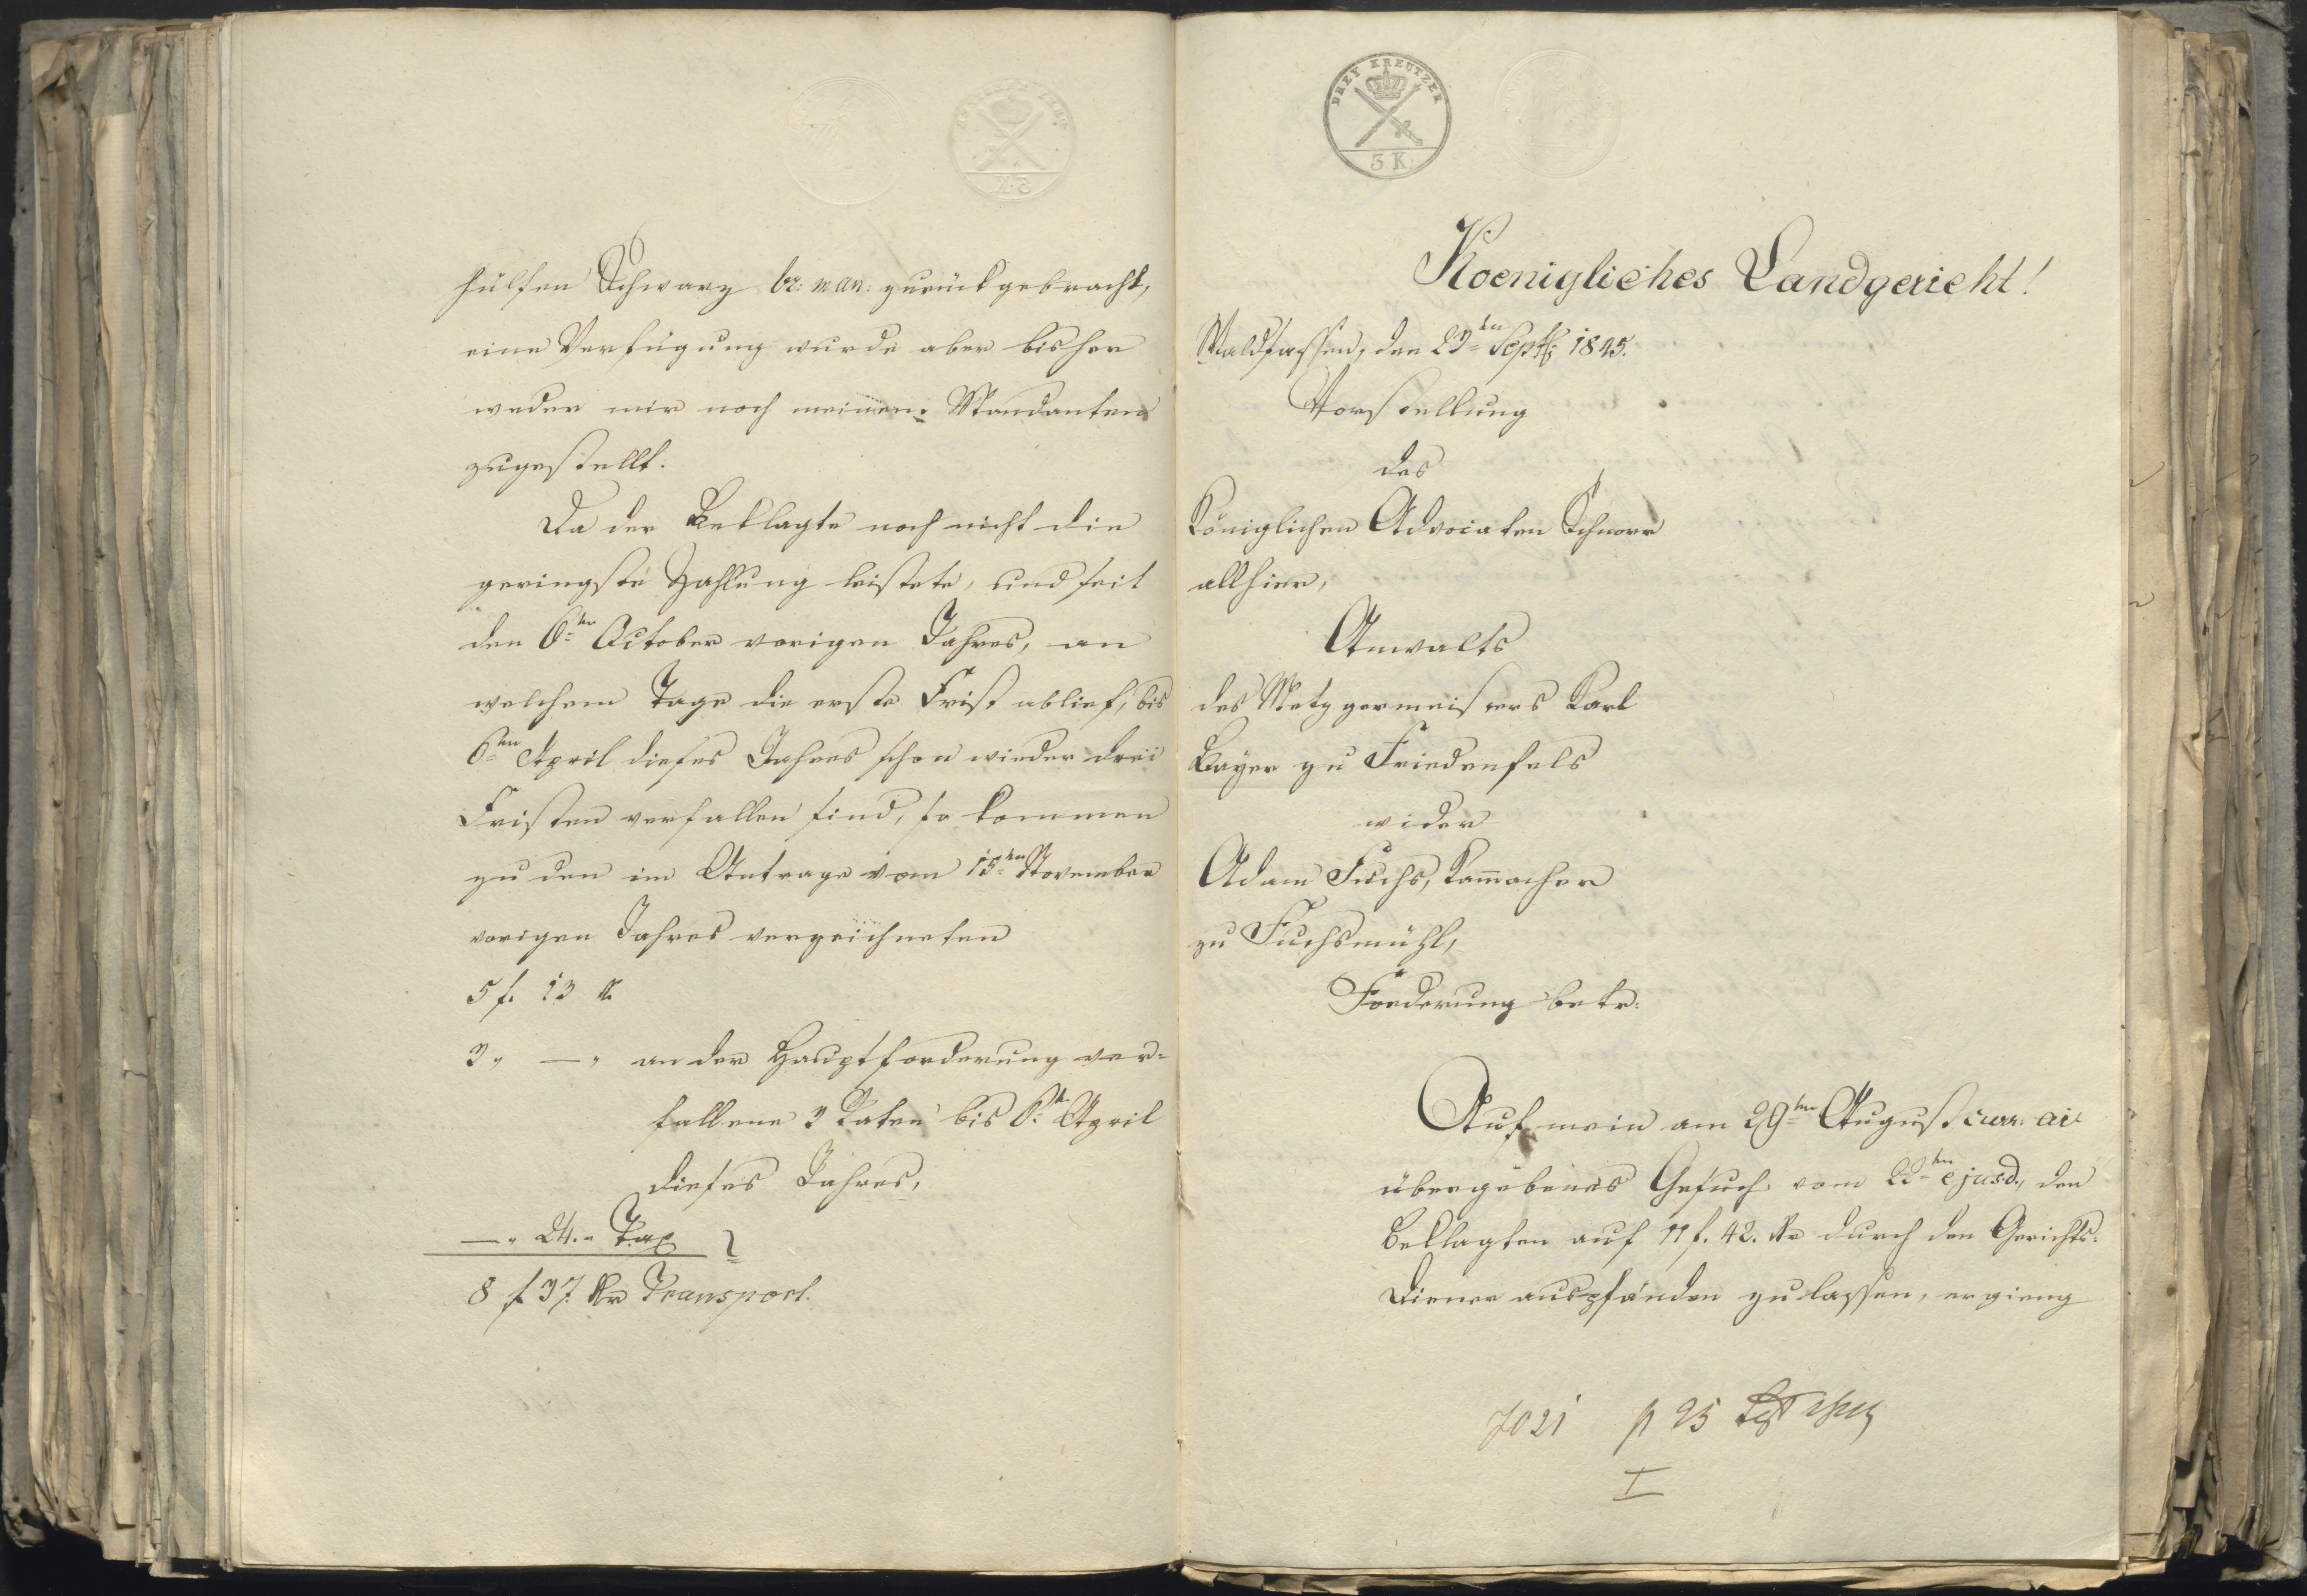 hülfen Schwarz br: man: zurückgebracht,
eine Verfügung wurde aber bisher
weder mir noch meinen Mandanten
zugestellt.
Da der Beklagte noch nicht die
geringste Zahlung leistete, und seit
den 6ten October vorigen Jahres, an
welchem Tage die erste Frist ablief, bis
6ten April dieses Jahres schon wieder drei
Fristen verfallen sind, so kommen
zu den im Antrage vom 15ten November
vorigen Jahres verzeichneten
5 f. 13 k.
3 „ — „ an der Hauptforderung ver=
fallene 3 Raten bis 6te April
dieses Jahres,
— „ 24. „ Tax
8 f 37. kr Transport.
DREY KREUTZER
3 K.
Koenigliches Landgericht!
Waldsassen, den 22ten Septb: 1845.
Vorstellung
des
Königlichen Advocaten Schnorr
allhier,
Anwalts
des Metzgermeisters Karl
Bayer zu Friedenfels
wider
Adam Fuchs, Kam̅acher
zu Fuchsmühl,
Forderung betr:
Auf mein am 29ten August curr: ai:
übergebenes Gesuch vom 22ten ejusd., den
Beklagten auf 11 f. 42. kr durch den Gerichts=
Diener auspfänden zu lassen, ergieng
7021 p 25 Sept
I